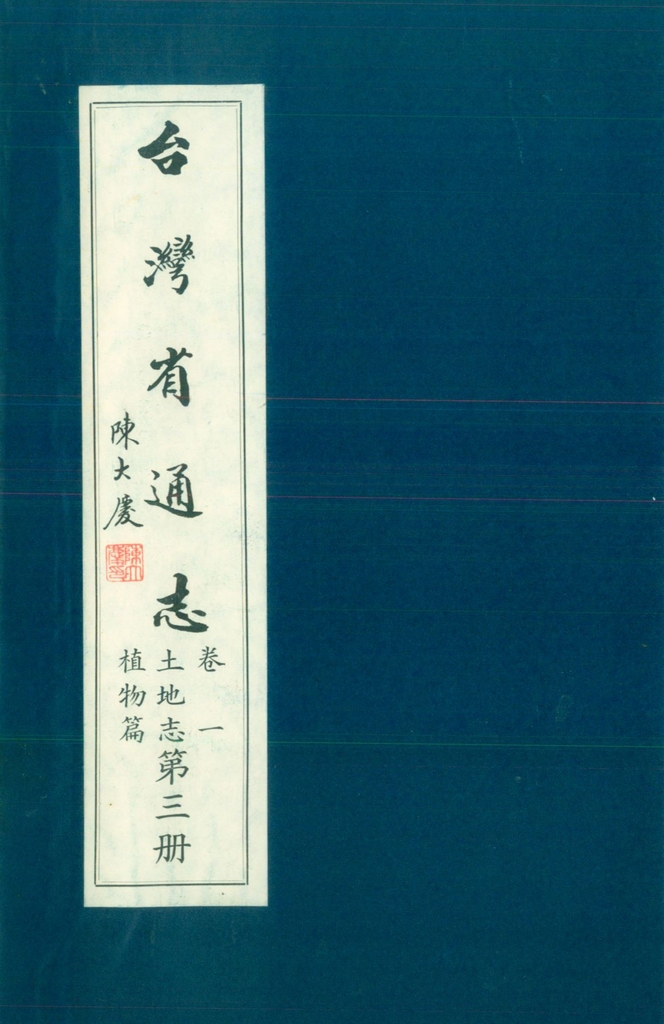 台灣省通志
卷一
土地志第三册
植物篇
陳大慶